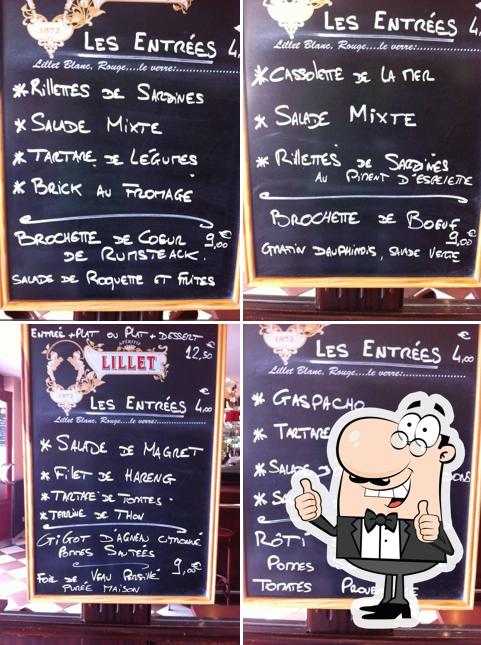 1872
LES ENTRÉES 4,
Lillet Blanc, Rouge....le verre:
* RILLETTES DE SARDINES
* SALADE MIXTE
* TARTARE DE LÉGUMES
* BRICK AU FROMAGE
BROCHETTE DE COEUR 9,00 €
DE RUMSTEACK.
SALADE DE ROQUETTE ET FRITES
LES ENTRÉES 4,
Lillet Blanc, Rouge....le verre:
* CASSOLETTE DE LA MER
* SALADE MIXTE
* RILLETTES DE SARDINES
AU PIMENT D'ESPELETTE
BROCHETTE DE BOEUF
9,00 €
GRATIN DAUPHINOIS, SALADE VERTE
ENTRÉE + PLAT OU PLAT + DESSERT
12,50 €
APÉRITIF
LILLET
1872
LES ENTRÉES 4,00 €
Lillet Blanc, Rouge....le verre:
* SALADE DE MAGRET
* FILET DE HARENG
* TARTARE DE TOMATES
* TERRINE DE THON
GIGOT D'AGNEAU CITRONNÉ
POMMES SAUTÉES
9,00 €
FOIE DE VEAU PERSILLÉ
PURÉE MAISON
1872
LES ENTRÉES 4,00 €
Lillet Blanc, Rouge....le verre:
* GASPACHO
* TARTARE
* SALADE
* SA
RÔTI
POMMES
TOMATES